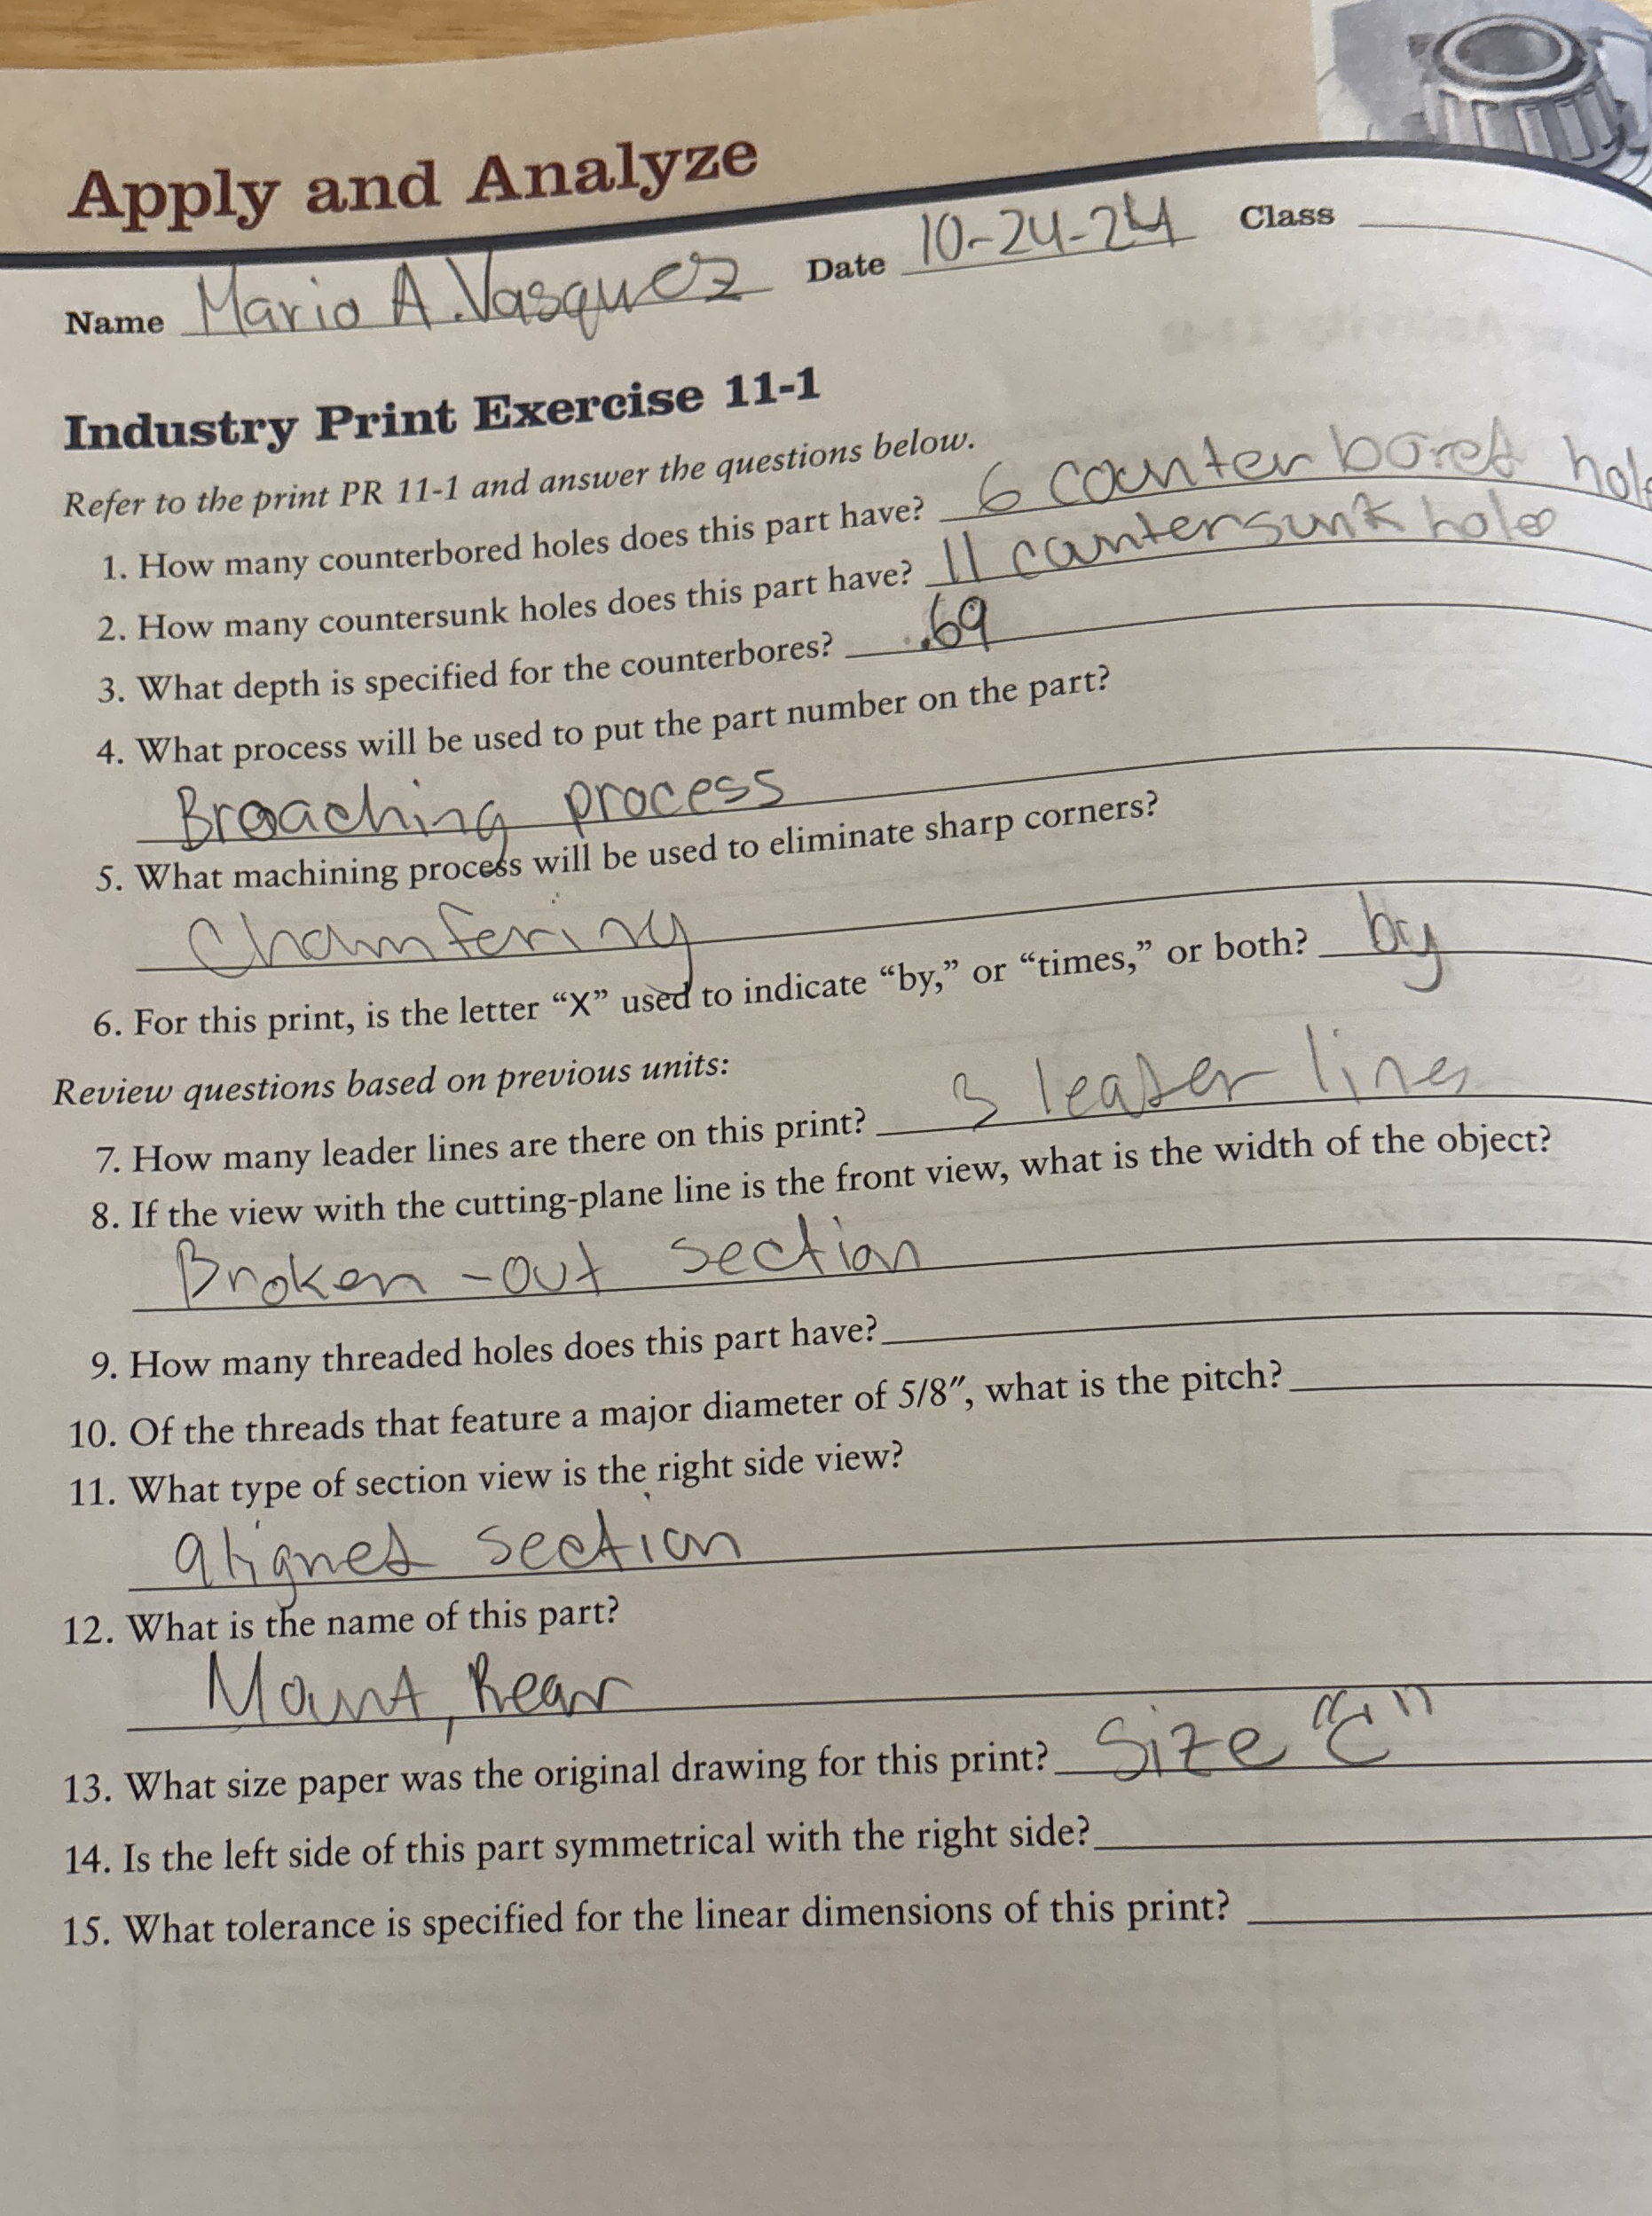 Apply and Analyze
Name Mario A. Vasquez Date 10-24-24 Class
Industry Print Exercise 11-1
Refer to the print PR 11-1 and answer the questions below.
1. How many counterbored holes does this part have? 6 counter bored hole
2. How many countersunk holes does this part have? 11 countersunk holes
3. What depth is specified for the counterbores? .69
4. What process will be used to put the part number on the part?
Broaching process
5. What machining process will be used to eliminate sharp corners?
Chamfering
6. For this print, is the letter “X” used to indicate “by,” or “times,” or both? by
Review questions based on previous units:
7. How many leader lines are there on this print? 3 leader lines
8. If the view with the cutting-plane line is the front view, what is the width of the object?
Broken-out section
9. How many threaded holes does this part have?
10. Of the threads that feature a major diameter of 5/8″, what is the pitch?
11. What type of section view is the right side view?
aligned section
12. What is the name of this part?
Mount, Rear
13. What size paper was the original drawing for this print? Size "C"
14. Is the left side of this part symmetrical with the right side?
15. What tolerance is specified for the linear dimensions of this print?